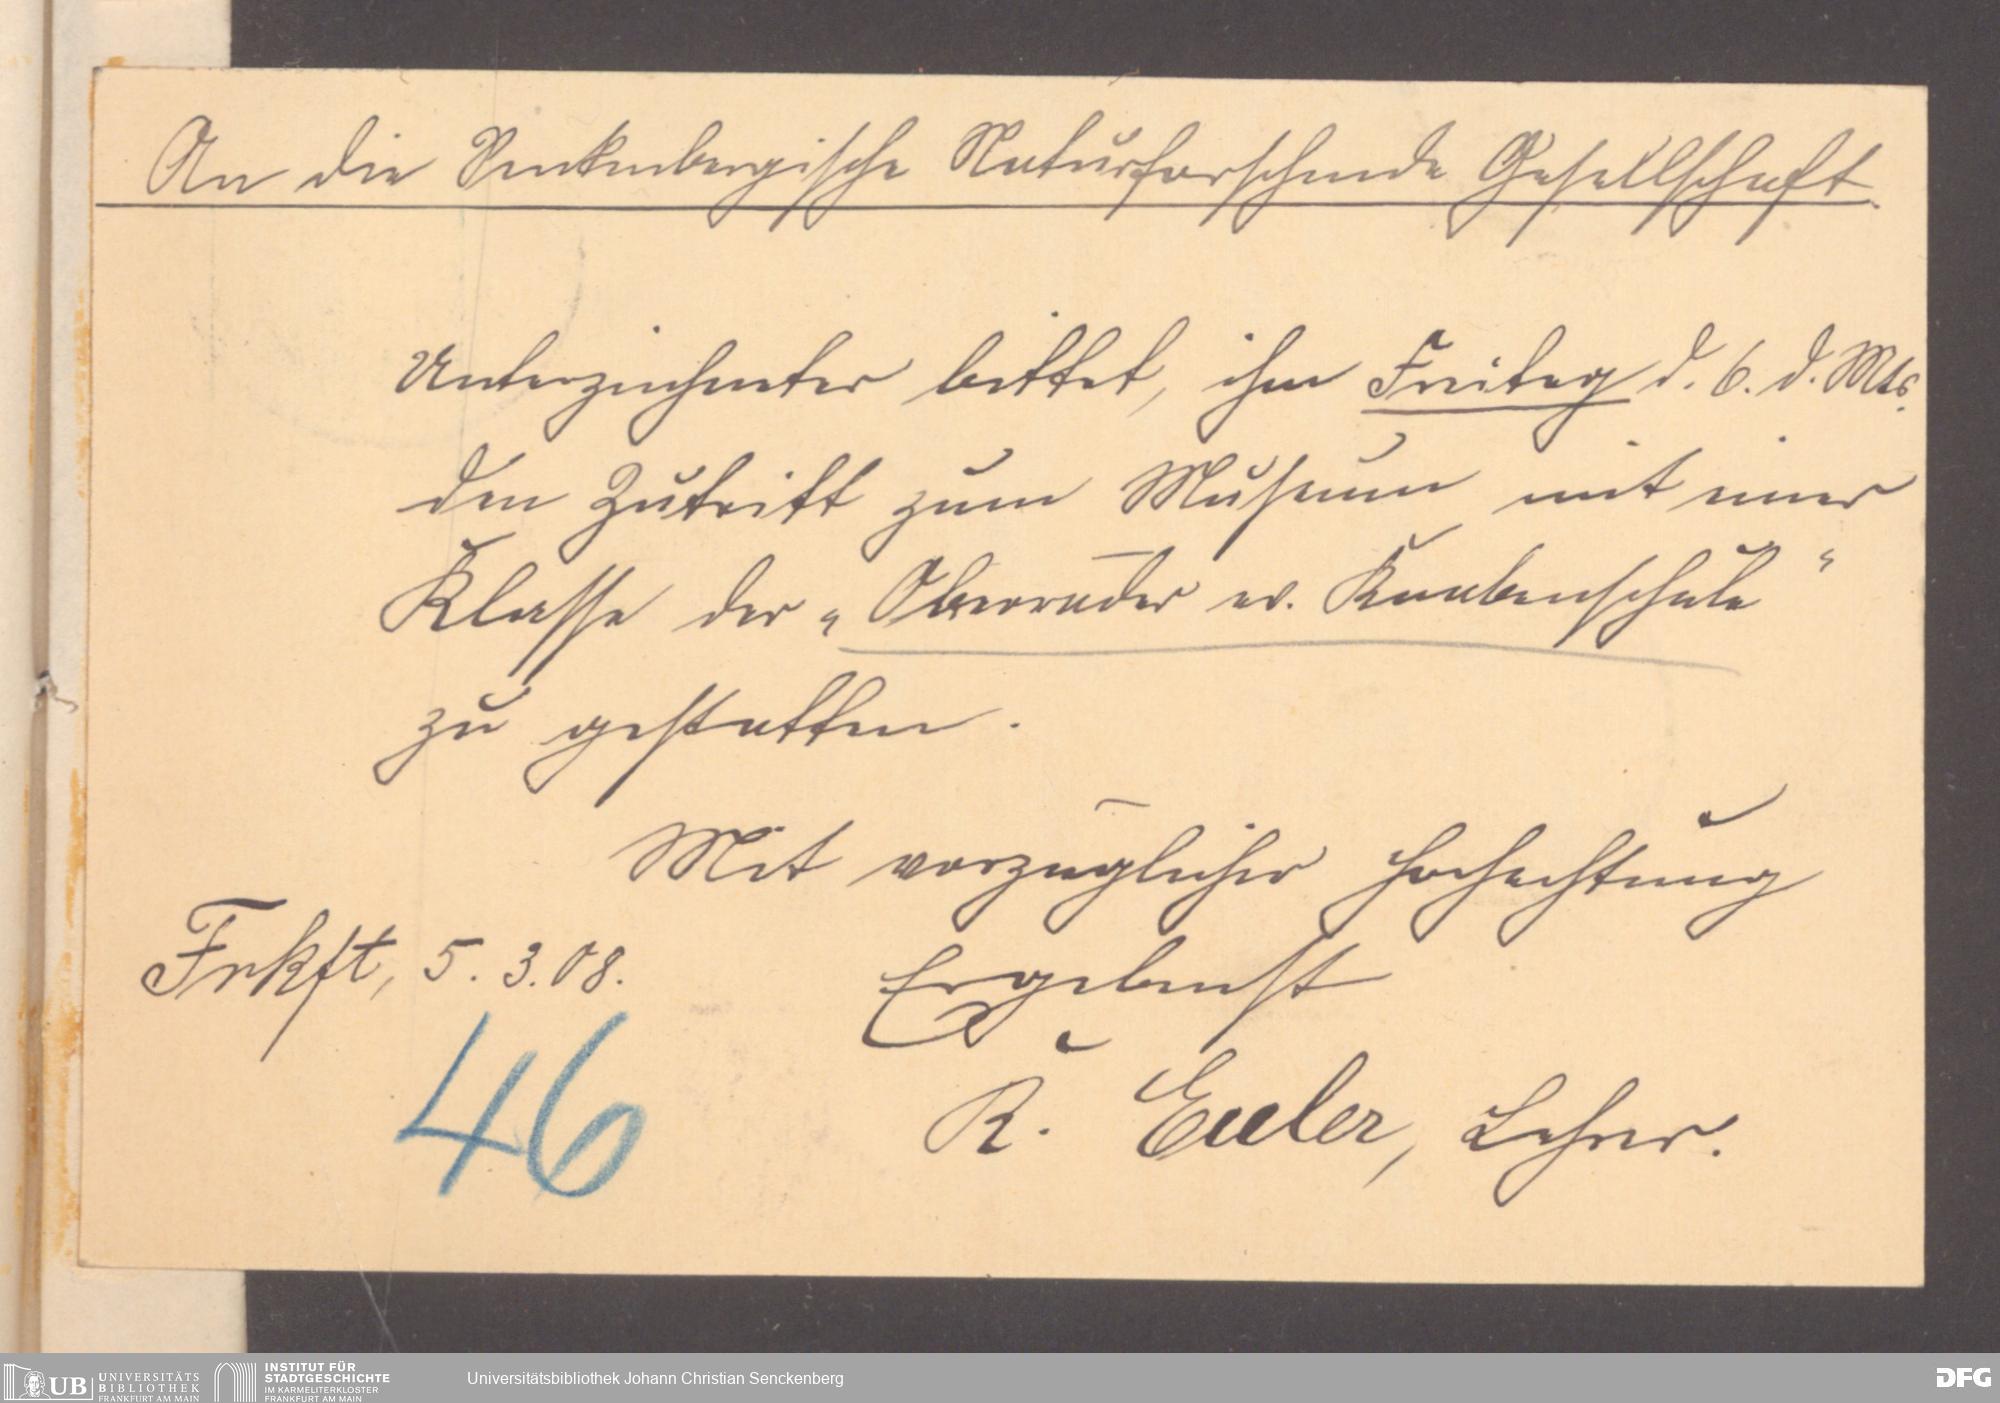 An die Senkenbergische Naturforschende Gesellschaft.
Unterzeichneter bittet, ihm Freitag d. 6. d. Mts.
den Zutritt zum Museum mit einer
Klasse der „Oberräder ev. Knabenschule"
zu gestatten.
Mit vorzüglicher Hochachtung
Frkft, 5. 3. 08.
Ergebenst
46
K. Euler, Lehrer.
UB UNIVERSITÄTS BIBLIOTHEK FRANKFURT AM MAIN
INSTITUT FÜR STADTGESCHICHTE IM KARMELITERKLOSTER FRANKFURT AM MAIN
Universitätsbibliothek Johann Christian Senckenberg
DFG